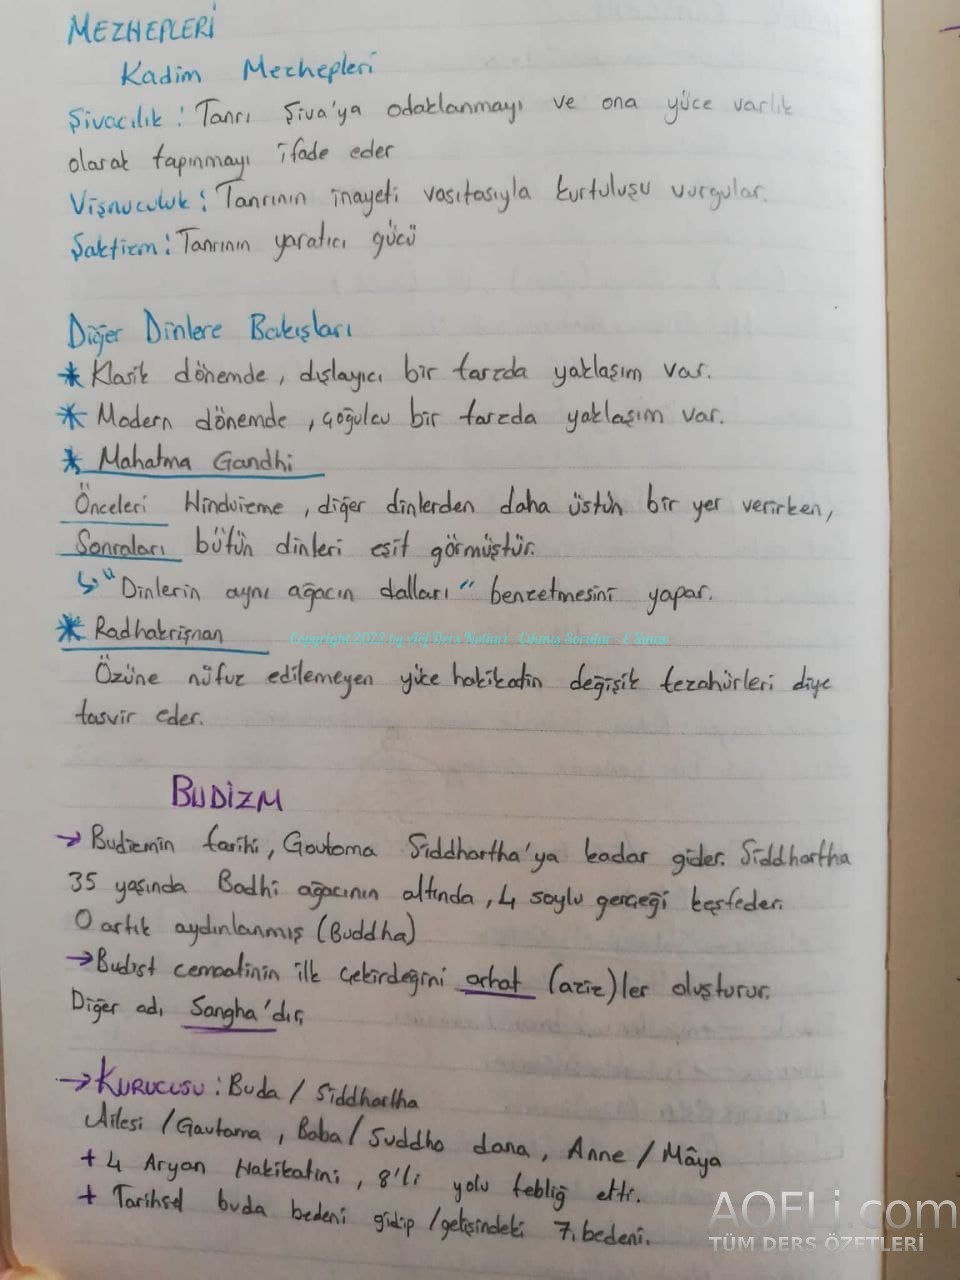 MEZHEPLERİ
Kadim Mezhepleri
Şivacılık: Tanrı Şiva'ya odaklanmayı ve ona yüce varlık
olarak tapınmayı ifade eder
Vişnuculuk: Tanrının inayeti vasıtasıyla kurtuluşu vurgular.
Şaktizm: Tanrının yaratıcı gücü
Diğer Dinlere Bakışları
* Klasik dönemde, dışlayıcı bir tarzda yaklaşım var.
* Modern dönemde, çoğulcu bir tarzda yaklaşım var.
* Mahatma Gandhi
Önceleri Hinduizme, diğer dinlerden daha üstün bir yer verirken,
Sonraları bütün dinleri eşit görmüştür.
↳ "Dinlerin aynı ağacın dalları" benzetmesini yapar.
* Radhakrişnan
Copyright 2022 by Aöf Ders Notları
Özüne nüfuz edilemeyen yüce hakikatin değişik tezahürleri diye
tasvir eder.
BUDİZM
→ Budizmin tarihi, Gautama Siddhartha'ya kadar gider. Siddhartha
35 yaşında Bodhi ağacının altında, 4 soylu gerçeği keşfeder.
O artık aydınlanmış (Buddha)
→ Budist cemaatinin ilk çekirdeğini arhat (aziz)ler oluşturur.
Diğer adı Sangha'dır.
→ KURUCUSU: Buda / Siddhartha
Ailesi / Gautama, Baba / Suddho dana, Anne / Mâya
+ 4 Aryan Hakikatini, 8'li yolu tebliğ etti.
+ Tarihsel buda bedeni gidip / gelişindeki 7. bedeni.
AOFLi.com
TÜM DERS ÖZETLERİ